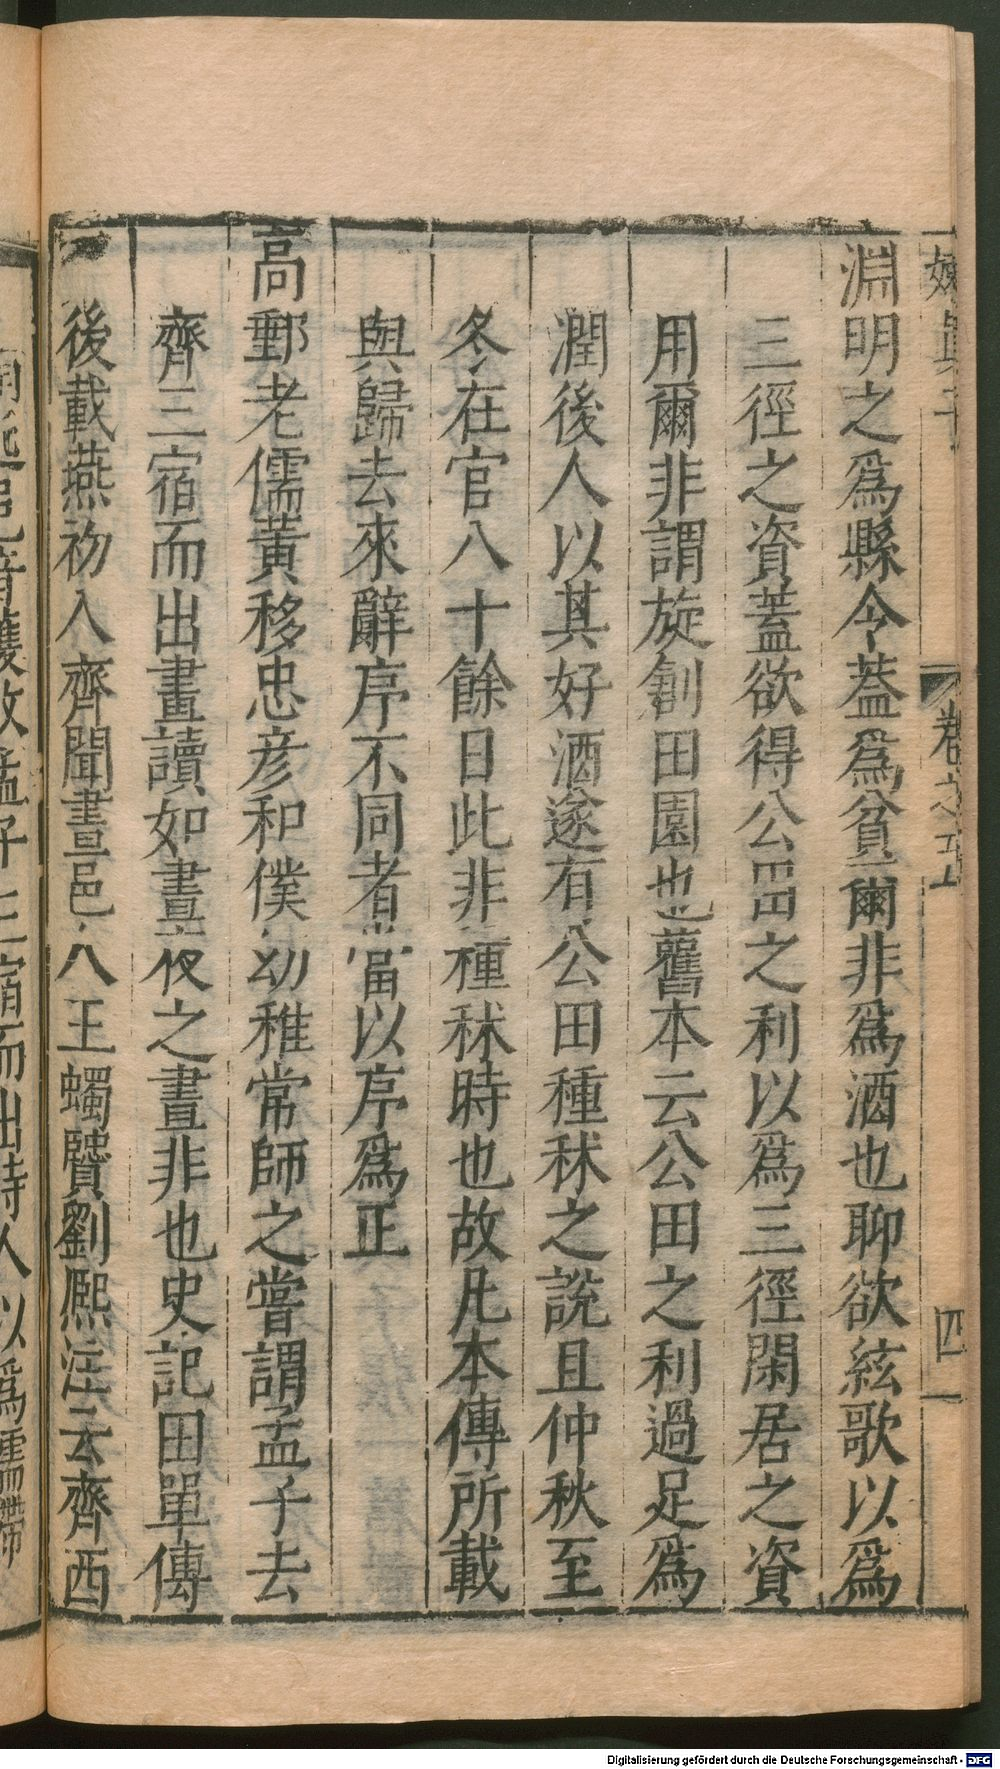 嬾眞子 卷之五 四
淵明之爲縣令葢爲貧爾非爲酒也聊欲絃歌以爲
三徑之資葢欲得公田之利以爲三徑閑居之資
用爾非謂旋創田園也舊本云公田之利過足爲
潤後人以其好酒遂有公田種秫之說且仲秋至
冬在官八十餘日此非種秫時也故凡本傳所載
與歸去來辭序不同者當以序爲正
高郵老儒黃移忠彥和僕幼稚常師之嘗謂孟子去
齊三宿而出晝讀如晝夜之晝非也史記田單傳
後載燕初入齊聞畫邑人王蠋賢劉熈注云齊西
出時人以爲
Digitalisierung gefördert durch die Deutsche Forschungsgemeinschaft - DFG